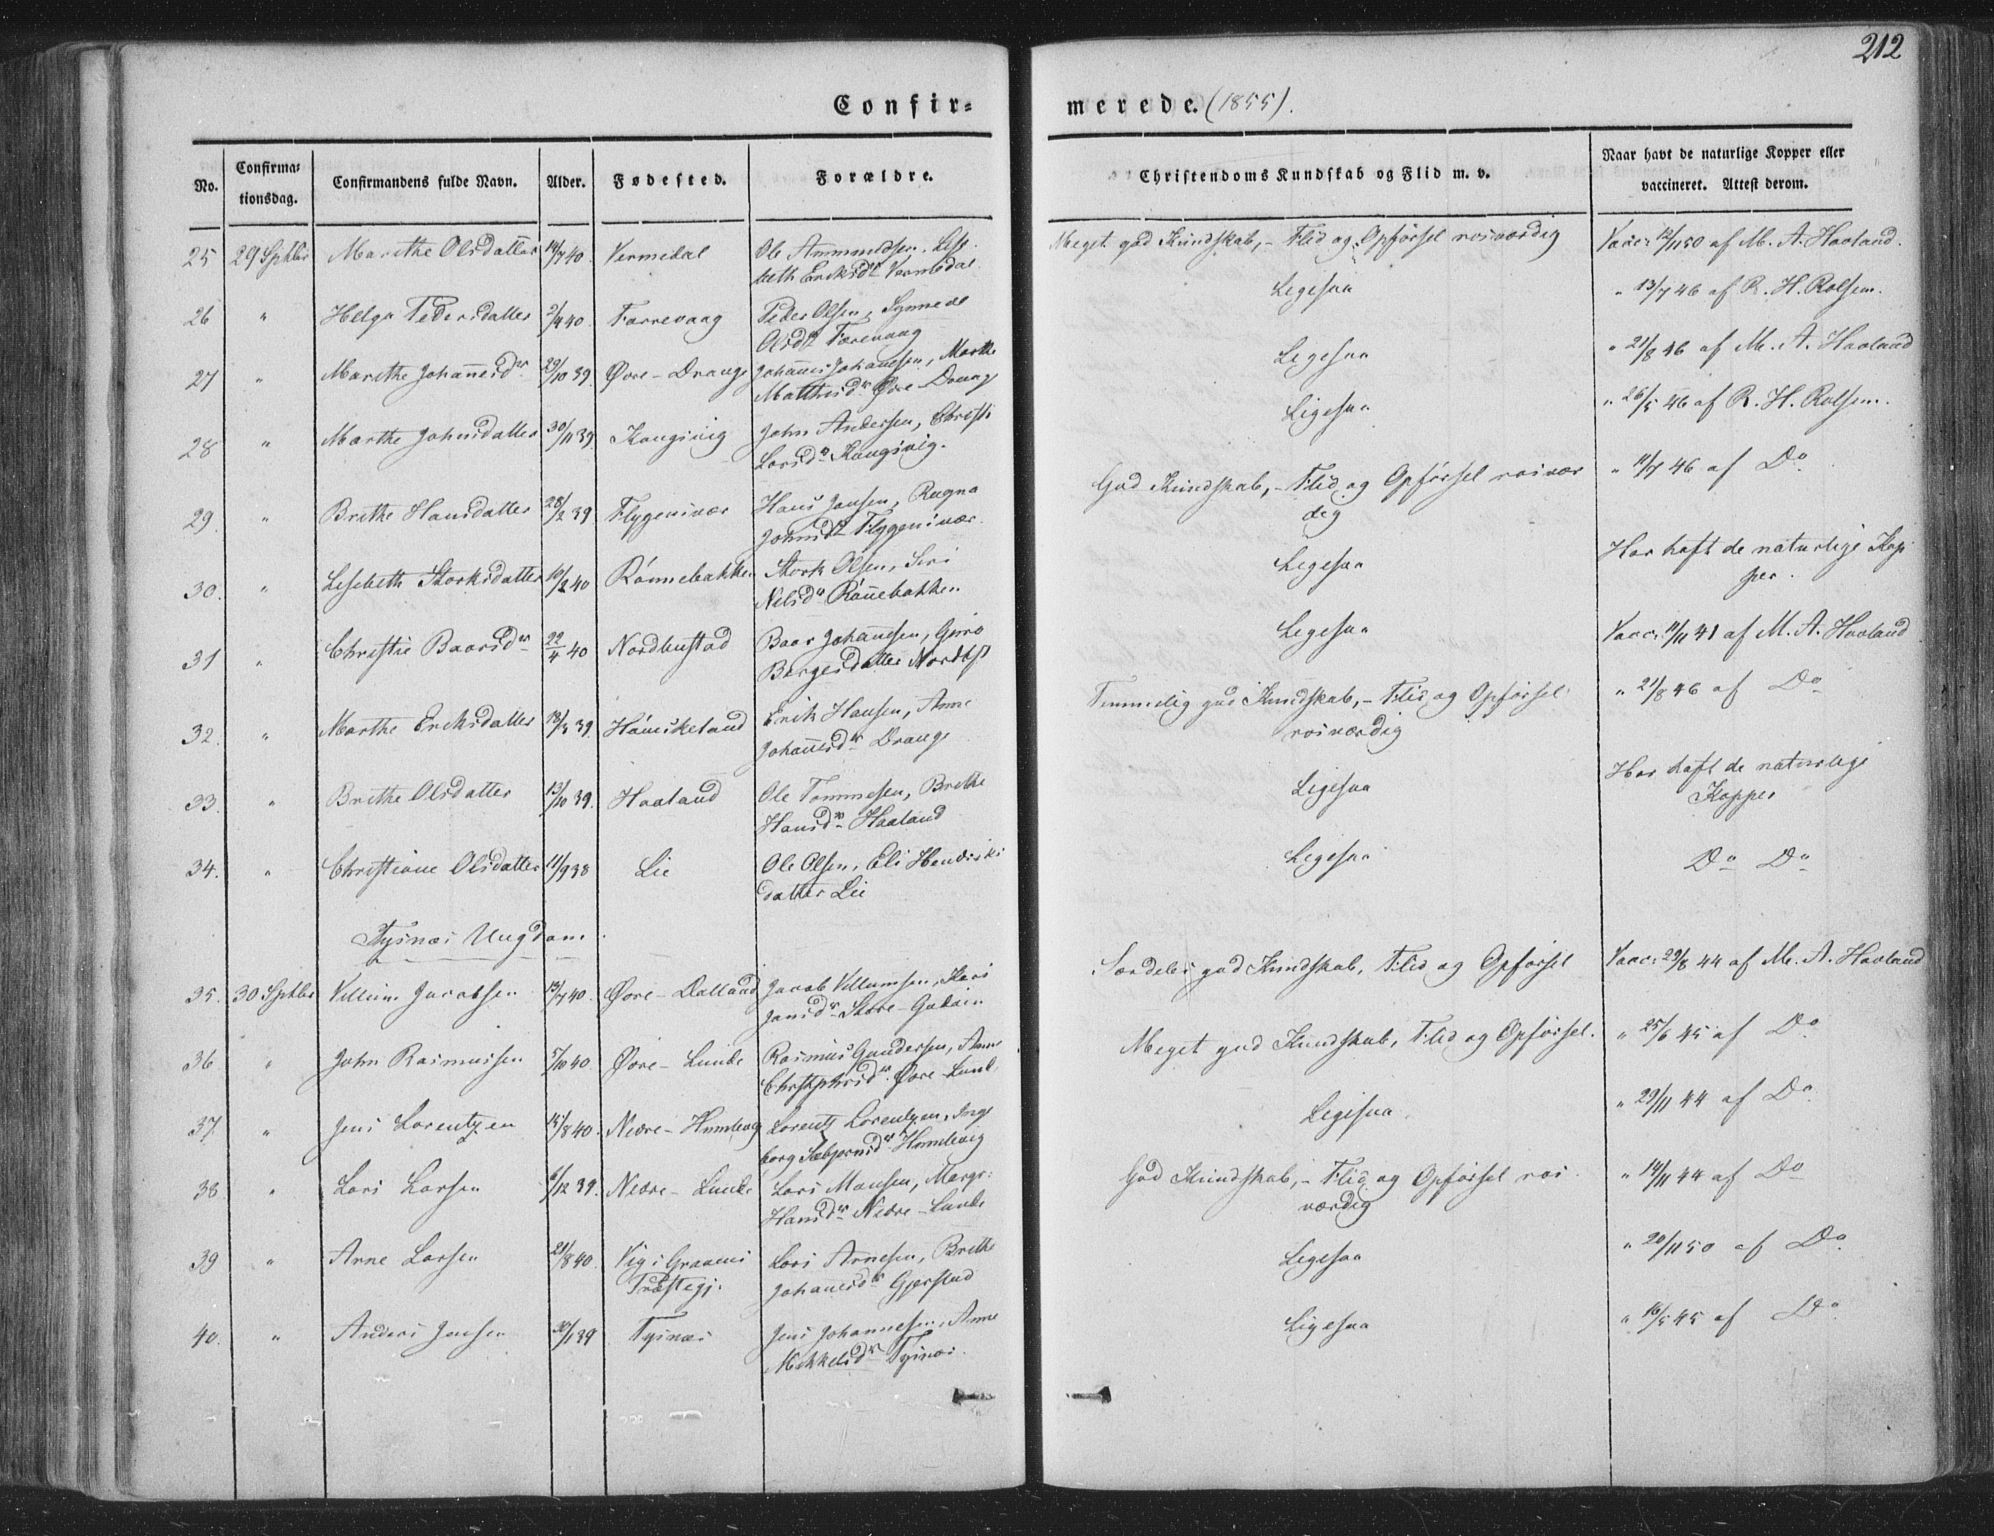 212
Confir-
merede. (1855).
No.
Confirmationsdag.
Confirmandens fulde Navn.
Alder.
Fødested.
Forældre.
Christendoms Kundskab og Flid m. v.
Naar havt de naturlige Kopper eller
vaccineret. Attest derom.
25 29 Septbr Marithe Olsdatter 14/7 40. Vermedal Ole Ammundsen, Lisbeth Eriksdr Vermedal Meget god Kundskab, - Flid og Opførsel rosværdig Vacc: 12/11 50 af M. A. Haaland.
26 " Helga Pedersdatter 2/4 40. Færevaag Peder Olsen, Synneve
Olsdr Færevaag Ligesaa " 13/7 46 af R. H. Rolfsen.
27 " Marithe Johannesdr 29/10 39. Øvre-Drange Johannes Johannesen, Marthe
Matthisdr Øvre Drange Ligesaa " 21/8 46 af M. A. Haaland
28 " Marthe Johnsdatter 30/11 39. Kongsvig John Andersen, Christi
Larsdr Kongsvig. Ligesaa " 26/5 46 af R. H. Rolfsen.
29. " Brithe Hansdatter 28/2 39 Flygensvær Hans Jansen, Ragna
Johnsdr Flyggensvær. God Kundskab, - Flid og Opførsel rosvær
dig " 11/7 46 af Do
30. " Lisebeth Storksdatter 10/2 40 Rönnebakken Stork Olsen, Siri
Nelsdr Rönnebakken Ligesaa Har haft de naturlige Kop
per.
31 " Christie Baarsdr 22/4 40 Nordbustad Baar Johannesen, Guro
Børgesdatter Nordbst Ligesaa Vacc: 11/11 41 af M. A. Haaland
32. " Marthe Eriksdatter 18/3 39. Hauskeland Erik Hansen, Anne
Johannesdr Drange Temmelig god Kundskab, - Flid og Opførsel
rosværdig " 21/8 46 af Do
33. " Brithe Olsdatter 13/10 39. Haaland Ole Tommesen, Brithe
Hansdr Haaland Ligesaa Har haft de naturlige
Kopper
34. " Christiane Olsdatter 11/9 38 Lie Ole Olsen, Eli Hendriks
datter Lie Ligesaa Do Do
Tysnæs Ungdom.
35. 30 Septbr Villum Jacobsen 13/7 40. Øvre-Dalland Jacob Villumsen, Kari
Jansdr Store-Gudøin Særdeles god Kundskab, Flid og Opførsel Vacc: 29/8 44 af M. A. Haaland
36 " John Rasmussen 5/10 40 Øvre-Lunde Rasmus Gundersen, Anne
Christophersdr Øvre-Lund. Meget god Kundskab, Flid og Opførsel. " 25/6 45 af Do
37. " Jens Lorentzen 15/8 40. Nedre-Humlevig Lorentz Lorentzen, Inge
borg Sebjørnsdr Humlevig Ligesaa. " 29/11 44 af Do
38. " Lars Larsen 6/12 39. Nedre-Lunde Lars Monsen, Margr:
Hansdr Nedre-Lunde God Kundskab, - Flid og Opførsel ros
værdig " 14/11 44 af Do
39 " Arne Larsen 21/8 40. Vig i Gravens
Præstegj. Lars Arnesen, Brithe
Johannesdr Gjerstad Ligesaa " 20/11 50 af Do
40. " Anders Jensen 30/1 39 Tysnæs Jens Johannesen, Anne
Mikkelsdr Tysnæs. Ligesaa " 16/5 45 af Do